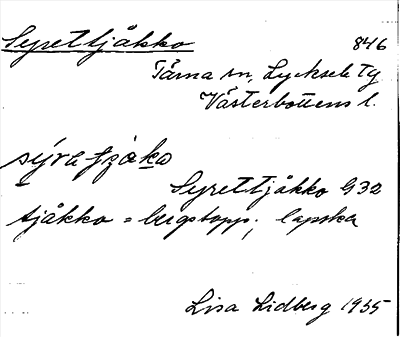 Syrettjåkko 846
Tärna sn, Lycksele tg
Västerbottens l.
sýra tjåka
Syrettjåkko G32
tjåkko = bergstopp; lapska
Lisa Lidberg 1935